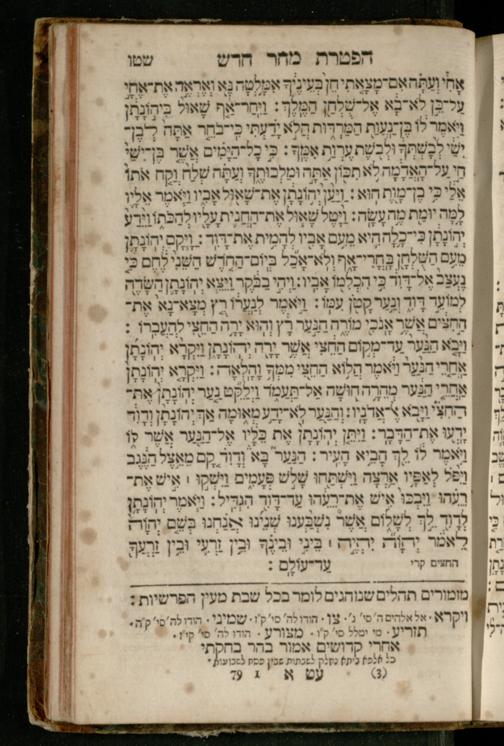 הפטרת מחר חדש שטו
אָחִי וְעַתָּה אִם־מָצָאתִי חֵן בְּעֵינֶיךָ אִמָּלְטָה נָּא וְאֶרְאֶה אֶת־אֶחָי
עַל־כֵּן לֹא־בָא אֶל־שֻׁלְחַן הַמֶּלֶךְ : וַיִּחַר־אַף שָׁאוּל בִּיהוֹנָתָן
וַיֹּאמֶר לוֹ בֶּן־נַעֲוַת הַמַּרְדּוּת הֲלֹא יָדַעְתִּי כִּי־בֹחֵר אַתָּה לְבֶן־
יִשַׁי לְבָשְׁתְּךָ וּלְבֹשֶׁת עֶרְוַת אִמֶּךָ : כִּי כָל־הַיָּמִים אֲשֶׁר בֶּן־יִשַׁי
חַי עַל־הָאֲדָמָה לֹא תִכּוֹן אַתָּה וּמַלְכוּתֶךָ וְעַתָּה שְׁלַח וְקַח אֹתוֹ
אֵלַי כִּי בֶן־מָוֶת הוּא : וַיַּעַן יְהוֹנָתָן אֶת־שָׁאוּל אָבִיו וַיֹּאמֶר אֵלָיו
לָמָּה יוּמַת מֶה עָשָׂה : וַיָּטֶל שָׁאוּל אֶת־הַחֲנִית עָלָיו לְהַכֹּתוֹ וַיֵּדַע
יְהוֹנָתָן כִּי־כָלָה הִיא מֵעִם אָבִיו לְהָמִית אֶת־דָּוִד : וַיָּקָם יְהוֹנָתָן
מֵעִם הַשֻּׁלְחָן בָּחֳרִי־אָף וְלֹא־אָכַל בְּיוֹם־הַחֹדֶשׁ הַשֵּׁנִי לֶחֶם כִּי
נֶעְצַב אֶל־דָּוִד כִּי הִכְלִמוֹ אָבִיו : וַיְהִי בַבֹּקֶר וַיֵּצֵא יְהוֹנָתָן הַשָּׂדֶה
לְמוֹעֵד דָּוִד וְנַעַר קָטֹן עִמּוֹ : וַיֹּאמֶר לְנַעֲרוֹ רֻץ מְצָא־נָא אֶת־
הַחִצִּים אֲשֶׁר אָנֹכִי מוֹרֶה הַנַּעַר רָץ וְהוּא יָרָה הַחֵצִי לְהַעֲבִרוֹ :
וַיָּבֹא הַנַּעַר עַד־מְקוֹם הַחֵצִי אֲשֶׁר יָרָה יְהוֹנָתָן וַיִּקְרָא יְהוֹנָתָן
אַחֲרֵי הַנַּעַר וַיֹּאמֶר הֲלוֹא הַחֵצִי מִמְּךָ וָהָלְאָה : וַיִּקְרָא יְהוֹנָתָן
אַחֲרֵי הַנַּעַר מְהֵרָה חוּשָׁה אַל־תַּעֲמֹד וַיְלַקֵּט נַעַר יְהוֹנָתָן אֶת־
החצי וַיָּבֹא אֶל־אֲדֹנָיו : וְהַנַּעַר לֹא־יָדַע מְאוּמָה אַךְ יְהוֹנָתָן וְדָוִד
יָדְעוּ אֶת־הַדָּבָר : וַיִּתֵּן יְהוֹנָתָן אֶת כֵּלָיו אֶל־הַנַּעַר אֲשֶׁר לוֹ
וַיֹּאמֶר לוֹ לֵךְ הָבֵיא הָעִיר : הַנַּעַר בָּא וְדָוִד קָם מֵאֵצֶל הַנֶּגֶב
וַיִּפֹּל לְאַפָּיו אַרְצָה וַיִּשְׁתַּחוּ שָׁלֹשׁ פְּעָמִים וַיִּשְּׁקוּ ׀ אִישׁ אֶת־
רֵעֵהוּ וַיִּבְכּוּ אִישׁ אֶת־רֵעֵהוּ עַד־דָּוִד הִגְדִּיל : וַיֹּאמֶר יְהוֹנָתָן
לְדָוִד לֵךְ לְשָׁלוֹם אֲשֶׁר נִשְׁבַּעְנוּ שְׁנֵינוּ אֲנַחְנוּ בְּשֵׁם יְהוָֹה
לֵאמֹר יְהוָֹה יִהְיֶה ׀ בֵּינִי וּבֵינֶךָ וּבֵין זַרְעִי וּבֵין זַרְעֲךָ
עַד־עוֹלָם : החצים קרי
מזמורים תהלים שנוהגים לומר בכל שבת מעין הפרשיות :
ויקרא · אל אלהים ה' סי' נ' · צו · הודו לה' סי' ק"ו · שמיני · הודו לה' סי' ק"ה ·
תזריע · מי ימלל סי' ק"ו · מצורע · הודו לה' סי' ק"ז ·
אחרי קדושים אמור בהר בחקתי
כל אלפא ביתא נחלק לשבתות שבין פסח לשבועות ·
(3) עט א 1 79